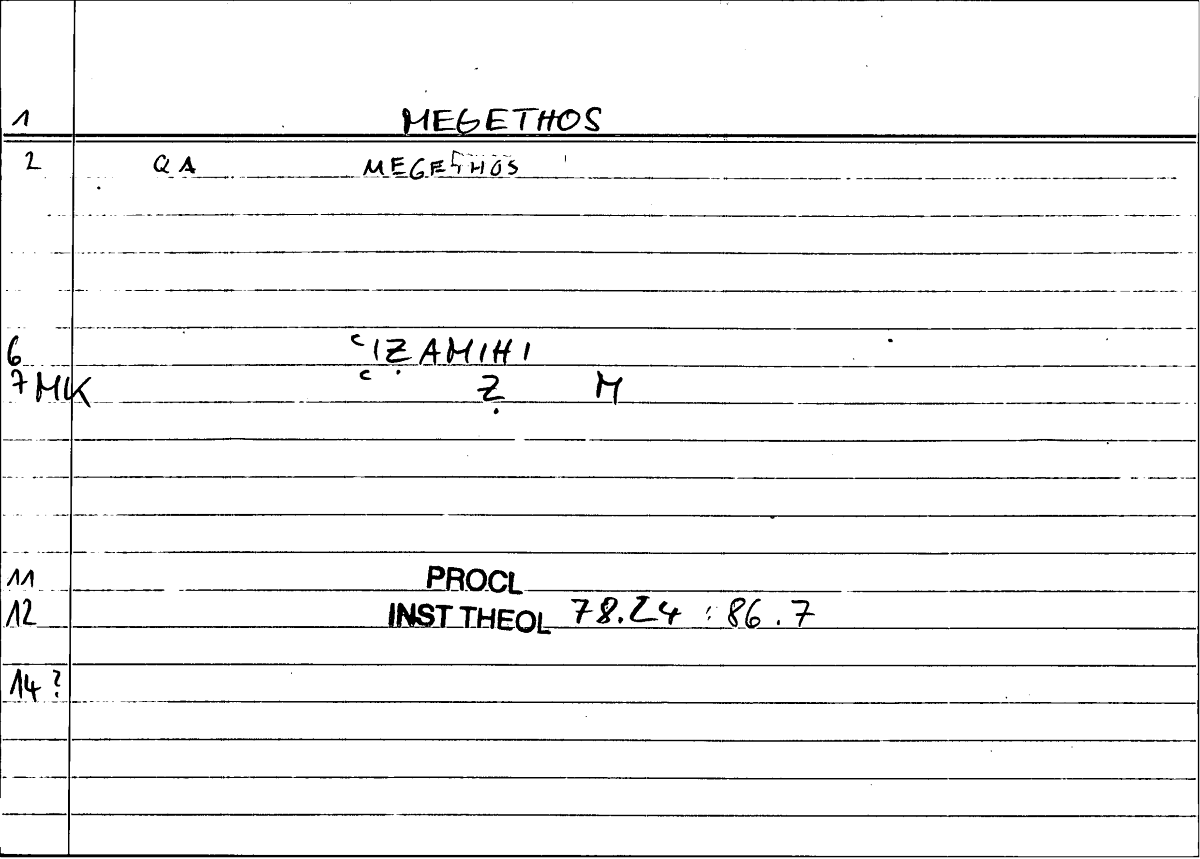 1 MEGETHOS
2 QA MEGETHOS
6 ʿIẒAMIHI
7 MK ʿ Ẓ M
11 PROCL
12 INST THEOL 78.24 : 86.7
14 ?